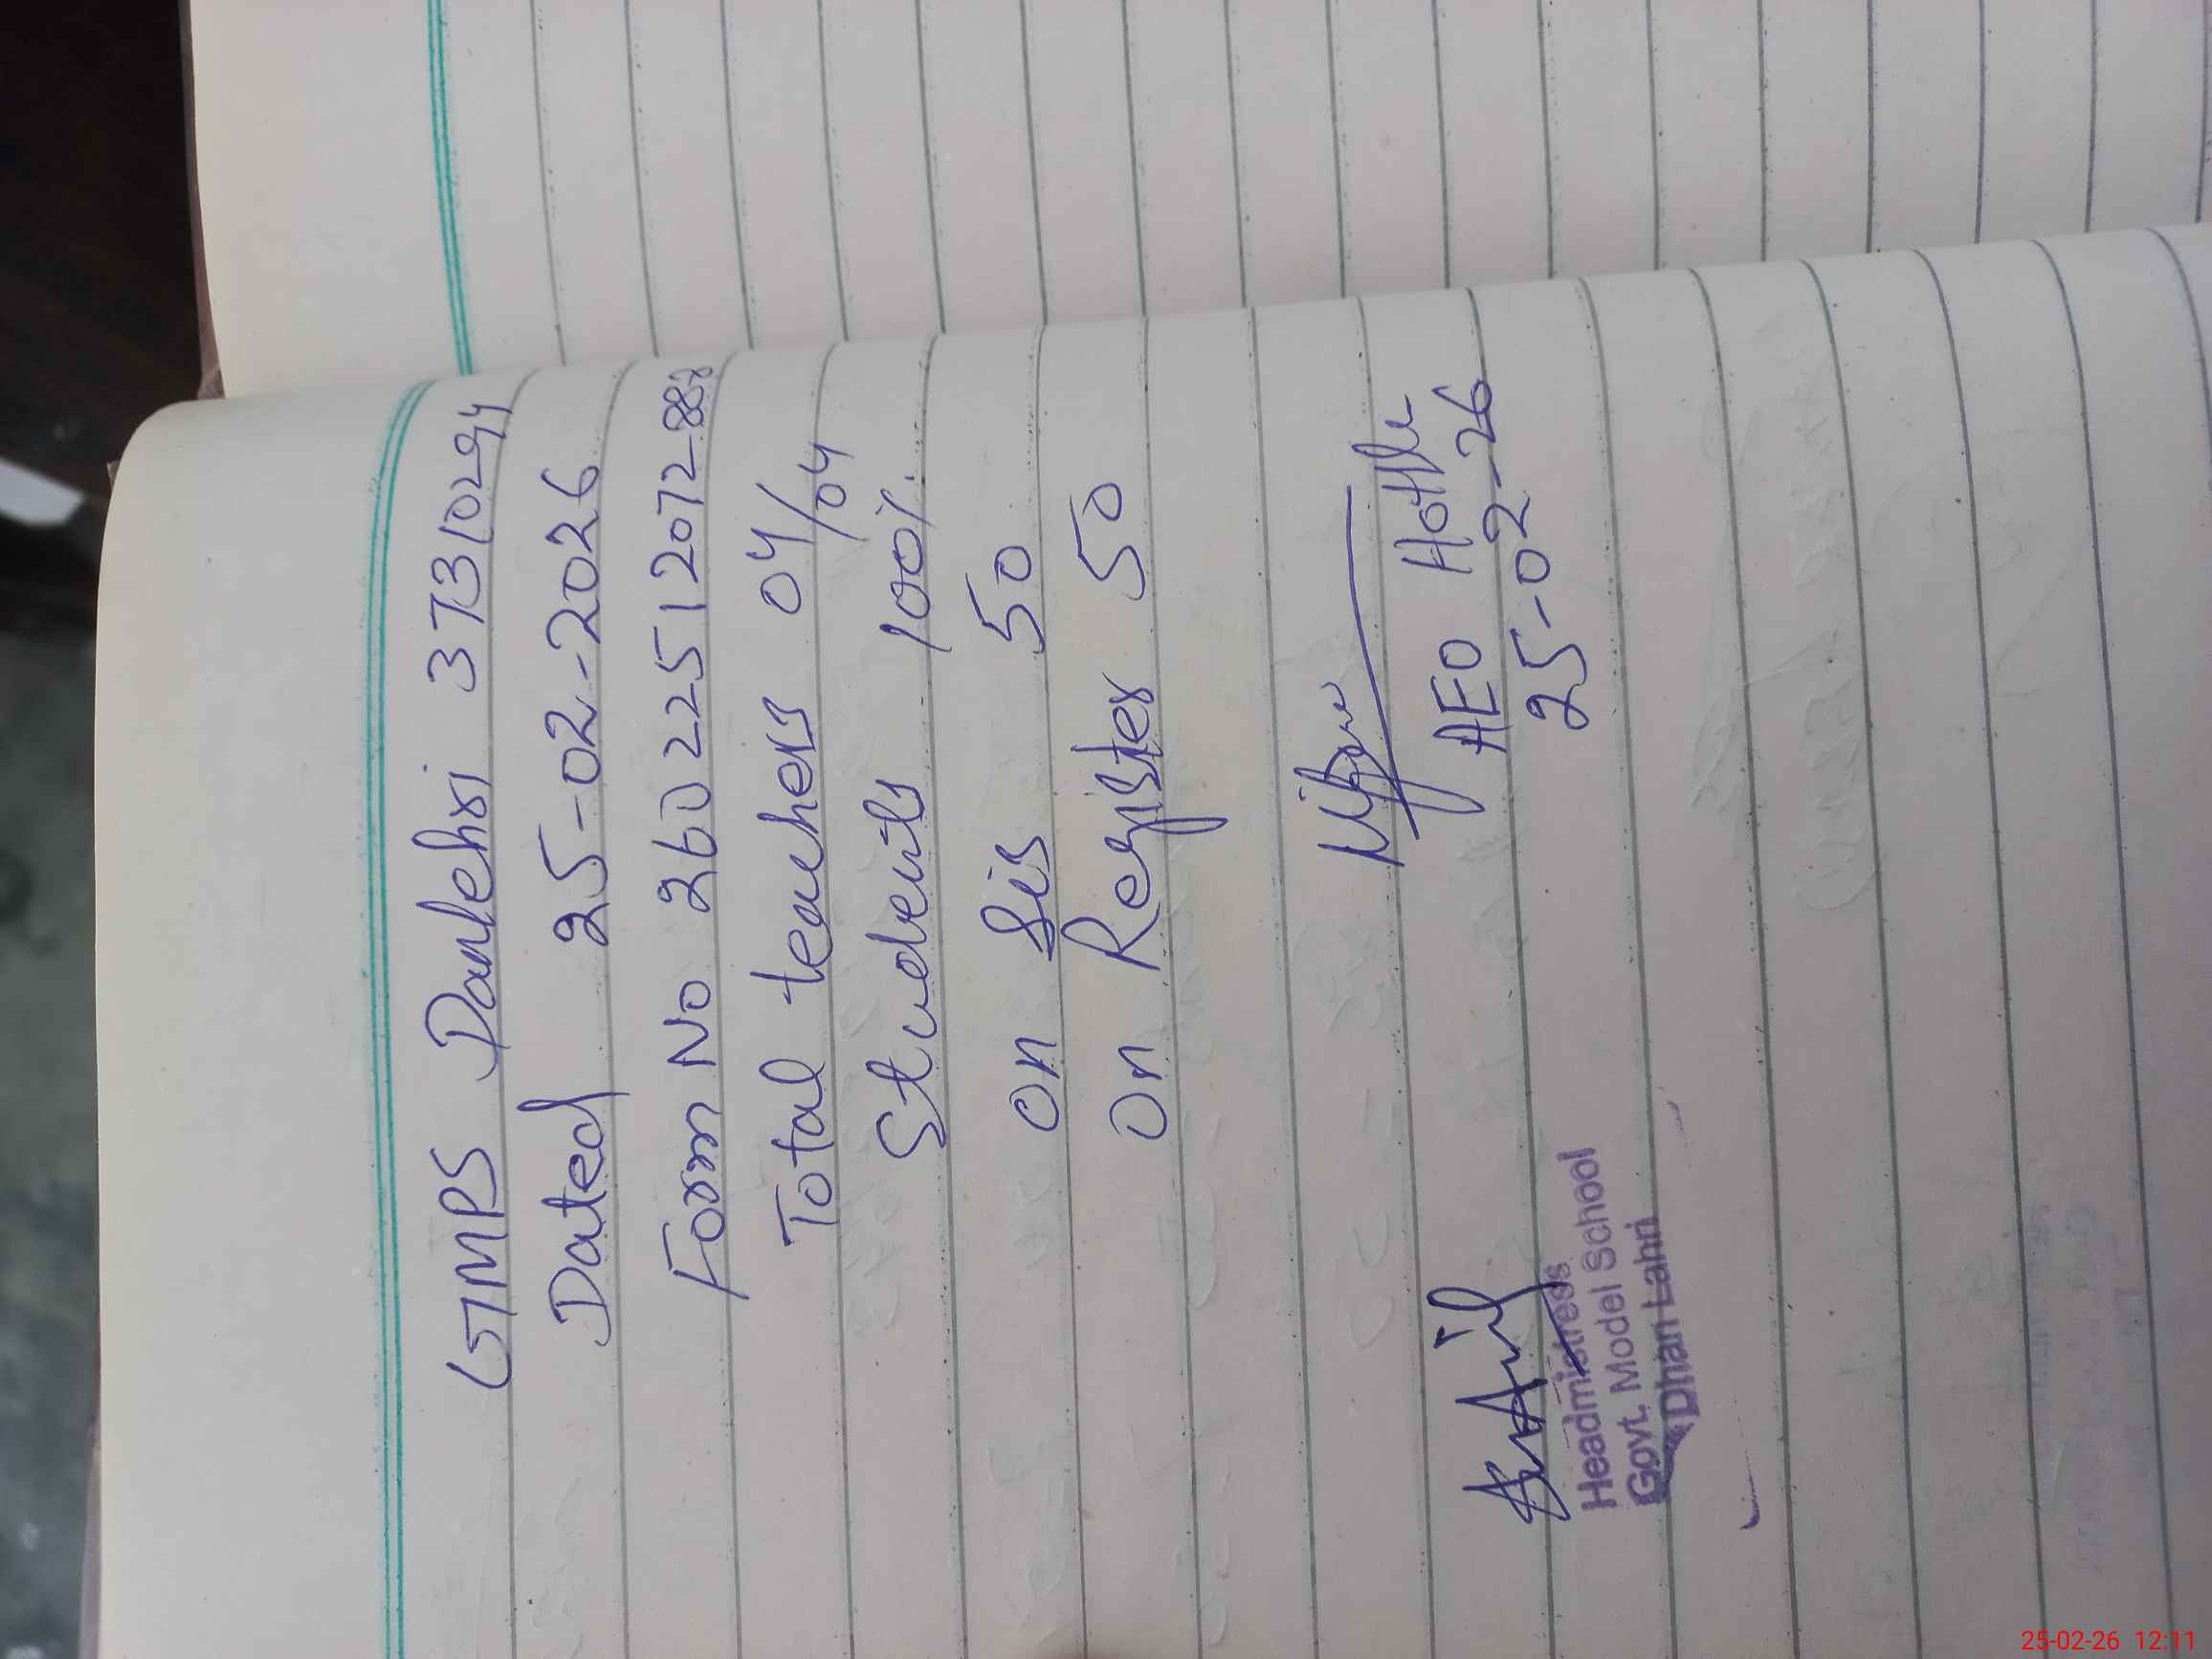 GMPS Danlehri 37310294
Dated 25-02-2026
Form No 2602251 2072
Total teachers 04/04
Students 100%
On Sis 50
On Register 50
AEO
25-02-26
Headmistress
Govt. Model School
Dhan Lahri
25-02-26 12:11